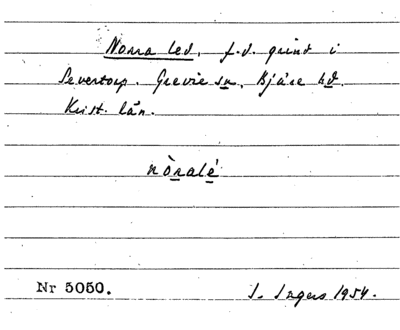 Norra led, f.d. grind i
Severtorp. Grevie sn, Bjäre hd.
Krist. län.
nòralé
Nr 5050. S. Ingers 1954.